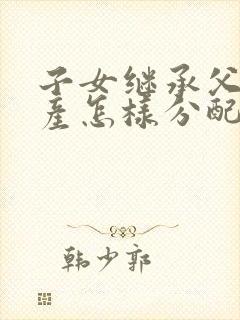 子女继承父
產怎样分配
韩少郭